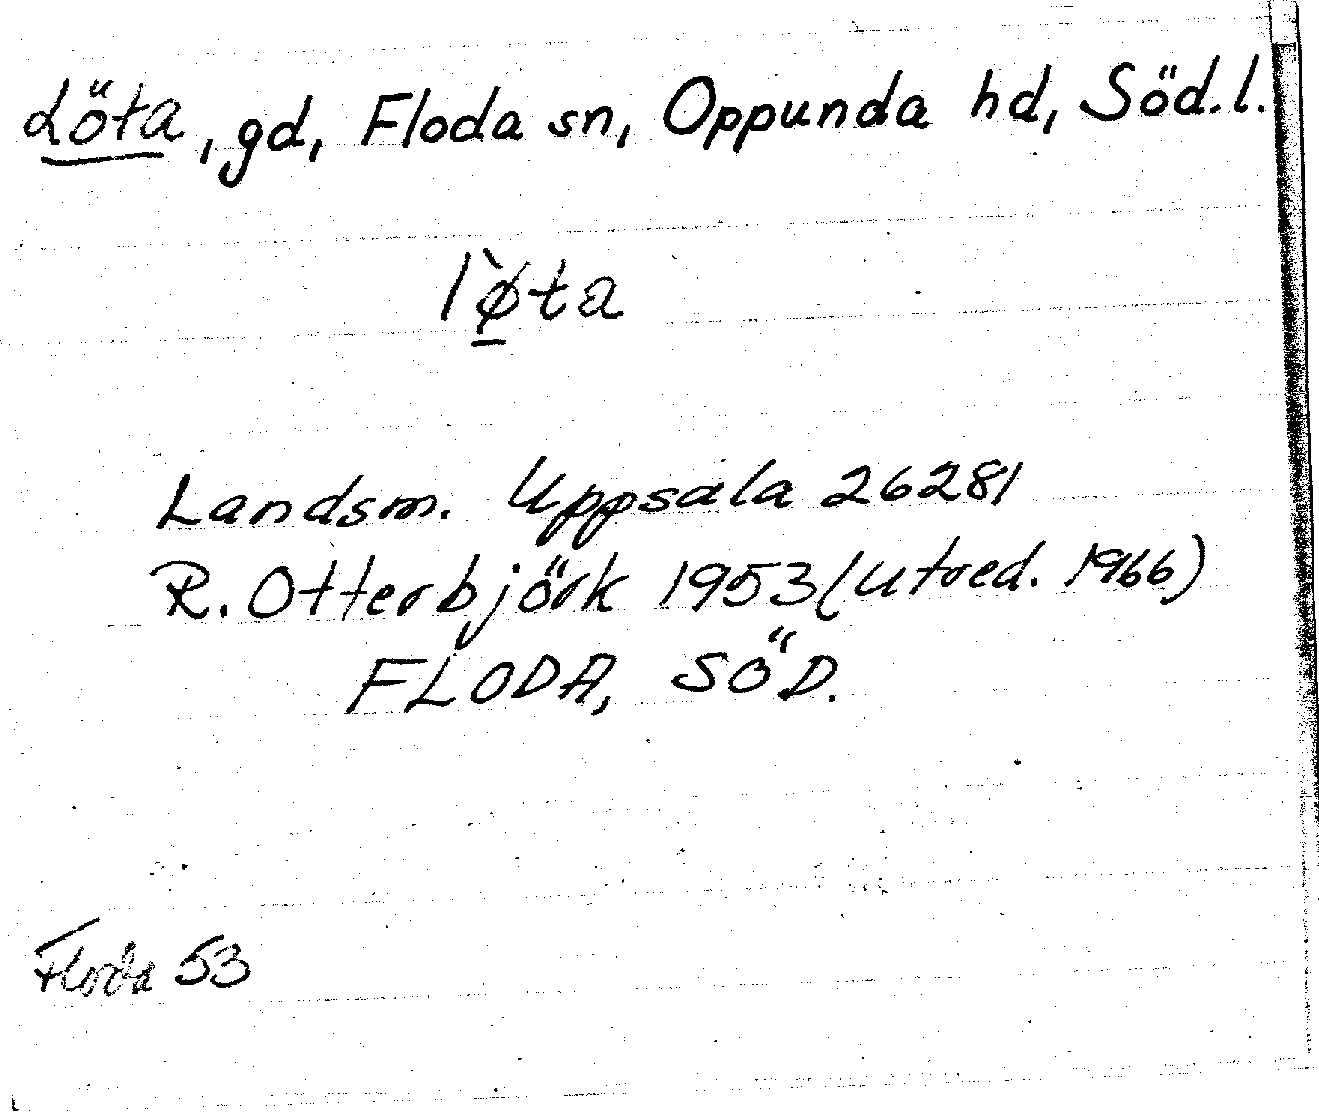 Löta, gd, Floda sn, Oppunda hd, Söd.l.
lø̀ta
Landsm. Uppsala 26281
R. Otterbjörk 1953 (utred. 1966)
FLODA, SÖD.
Floda 53